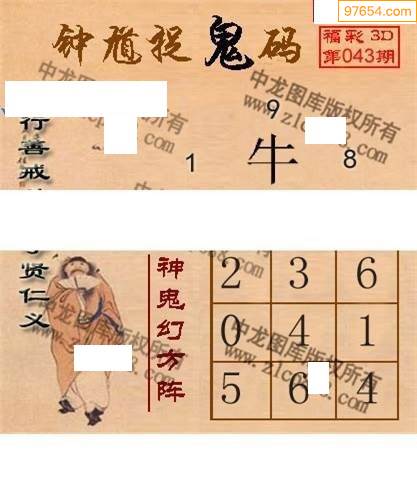 97654.com
钟馗捉鬼码
福彩3D
第043期
中龙图库版权所有
行善戒
9
1 牛 8
贤仁义
神鬼幻方阵
2 3 6
0 4 1
5 6 4
中龙图库版权所有